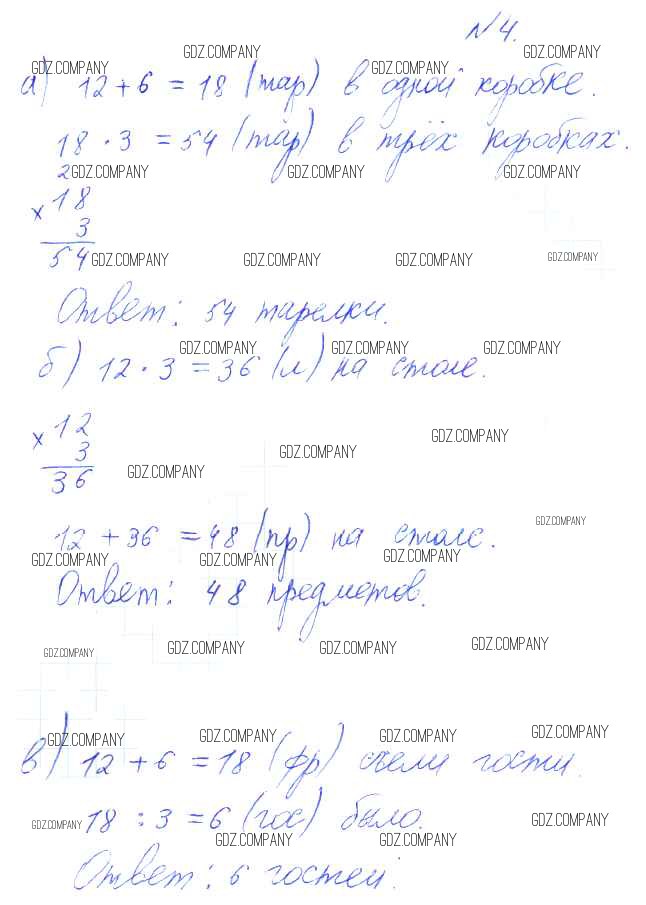 № 4.
GDZ.COMPANY GDZ.COMPANY
GDZ.COMPANY GDZ.COMPANY
а) 12 + 6 = 18 (тар) в одной коробке.
18 · 3 = 54 (тар) в трёх коробках.
2
GDZ.COMPANY GDZ.COMPANY GDZ.COMPANY
× 18
3
54
GDZ.COMPANY GDZ.COMPANY GDZ.COMPANY GDZ.COMPANY
Ответ: 54 тарелки.
GDZ.COMPANY GDZ.COMPANY GDZ.COMPANY
б) 12 · 3 = 36 (л) на столе.
× 12
3
36
GDZ.COMPANY
GDZ.COMPANY
GDZ.COMPANY
GDZ.COMPANY
12 + 36 = 48 (пр) на столе.
GDZ.COMPANY GDZ.COMPANY GDZ.COMPANY
Ответ: 48 предметов.
GDZ.COMPANY GDZ.COMPANY GDZ.COMPANY GDZ.COMPANY
GDZ.COMPANY GDZ.COMPANY GDZ.COMPANY GDZ.COMPANY
в) 12 + 6 = 18 (фр) съели гости.
18 : 3 = 6 (гос) было.
GDZ.COMPANY GDZ.COMPANY
GDZ.COMPANY GDZ.COMPANY
Ответ: 6 гостей.